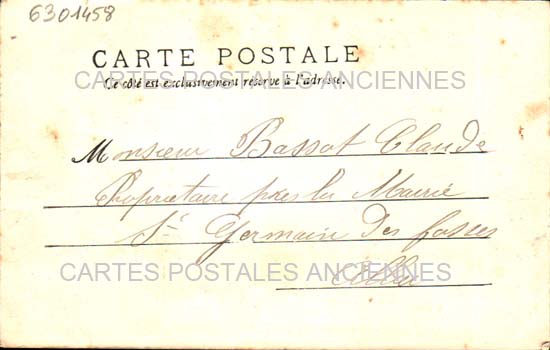 6301458
CARTE POSTALE
CARTES POSTALES ANCIENNES
Ce côté est exclusivement réservé à l'adresse.
Monsieur Bassot Claude
Propriétaire près la Mairie
St Germain des fossés
CARTES POSTALES ANCIENNES
Allier